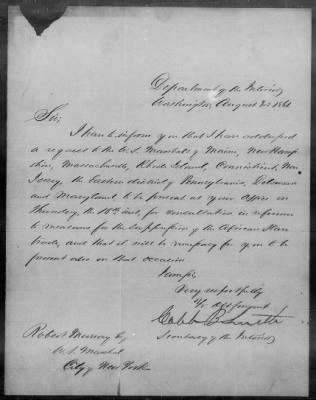 Department of the Interior
Washington, August 1861
Sir,
I have to inform you that I have addressed
a request to the U.S. Marshals of Maine, New Hamp-
shire, Massachusetts, Rhode Island, Connecticut, New
Jersey, the Eastern district of Pennsylvania, Delaware
and Maryland, to be present at your office on
Thursday, the 15th inst, for consultation in reference
to measures for the suppression of the African Slave
trade, and that it will be necessary for you to be
present also on that occasion
I am, Sir,
Very respectfully
Yr obt Servant
Caleb B Smith
Secretary of the Interior
Robert Murray Esq
U.S. Marshal
City of New York